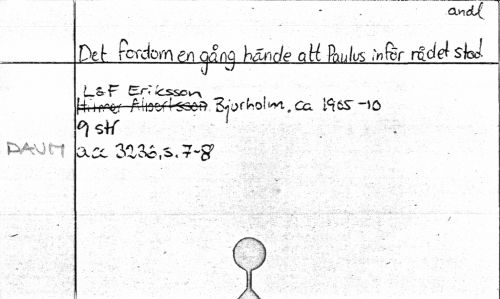 andl
Det fordom en gång hände att Paulus inför rådet stod
L&F Eriksson
Hilmer Albertsson Bjurholm, ca 1905-10
9 str
DAUM acc 3236, s. 7-8